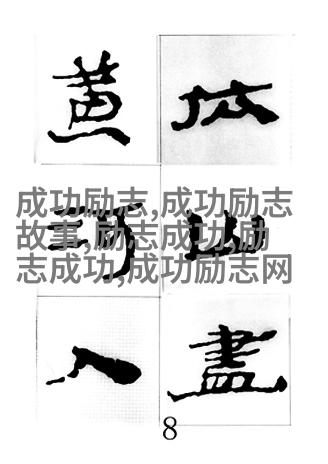 依山盡
黄河入
成功励志,成功励志
故事,励志成功,励
志成功,成功励志网
8